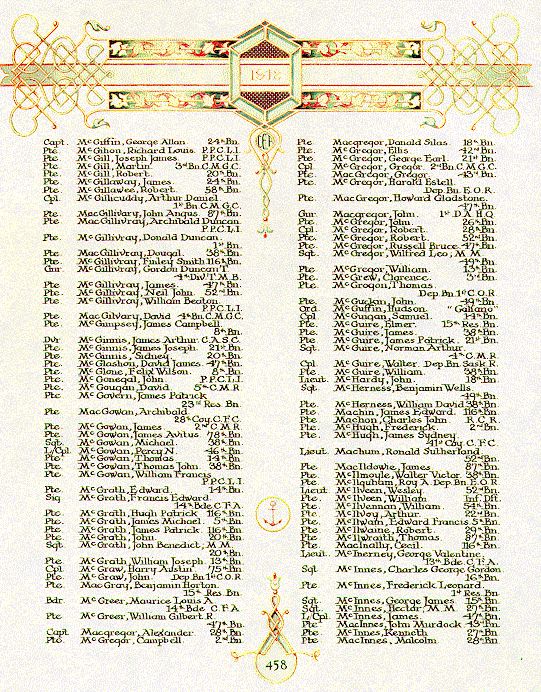 1918
CEF
Capt. McGiffin, George Allan 24th Bn.
Pte. McGihon, Richard Louis. P.P.C.L.I.
Pte. McGill, Joseph James. P.P.C.L.I.
Pte. McGill, Martin 3rd Bn. C.M.G.C.
Pte. McGill, Robert. 20th Bn.
Pte. McGillaway, James 24th Bn.
Pte. McGillawee, Robert. 58th Bn.
Cpl. McGillicuddy, Arthur Daniel
1st Bn. C.M.G.C.
Pte. MacGillivary, John Angus 87th Bn.
Pte. MacGillivray, Archibald Duncan
P.P.C.L.I.
Pte. McGillivray, Donald Duncan.
1st Bn.
Pte. MacGillivray, Dougal. 38th Bn.
Pte. McGillivray, Finley Smith 116th Bn.
Gnr. McGillivray, Gordon Duncan T.
4th Div. T.M.B.
Pte. McGillivray, James. 47th Bn.
Pte. McGillivray, Neil John 52nd Bn.
Pte. McGillivray, William Beaton.
P.P.C.L.I.
Pte. MacGilvary, David 4th Bn. C.M.G.C.
Pte. McGimpsey, James Campbell.
8th Bn.
Dvr. McGinnis, James Arthur C.A.S.C.
Pte. McGinnis, James Joseph 21st Bn.
Pte. McGinnis, Sidney 20th Bn.
Pte. McGlashon, David James 47th Bn.
Pte. McGlone, Felix Wilson 8th Bn.
Pte. McGonegal, John P.P.C.L.I.
Pte. McGougan, David 5th C.M.R.
Pte. McGovern, James Patrick
23rd Res. Bn.
Pte. MacGowan, Archibald
28th Coy. C.F.C.
Pte. McGowan, James 2nd C.M.R.
Pte. McGowan, James Avitus 78th Bn.
Sgt. McGowan, Michael 38th Bn.
L/Cpl. McGowan, Percy N. 46th Bn.
Pte. McGowan, Thomas 14th Bn.
Pte. McGowan, Thomas John 38th Bn.
Pte. McGowan, William Francis
P.P.C.L.I.
Pte. McGrath, Edward. 14th Bn.
Sig. McGrath, Francis Edward.
14th Bde. C.F.A.
Pte. McGrath, Hugh Patrick 116th Bn.
Pte. McGrath, James Michael 5th Bn.
Pte. McGrath, James Patrick 116th Bn.
Pte. McGrath, John 20th Bn.
Sgt. McGrath, John Benedict, M.M.
20th Bn.
Pte. McGrath, William Joseph 13th Bn.
Cpl. McGraw, Harry Austin 75th Bn.
Pte. McGraw, John Dep. Bn. 1st C.O.R.
Pte. MacGray, Benjamin Horton.
15th Res. Bn.
Bdr. McGreer, Maurice Louis A.
14th Bde. C.F.A.
Pte. McGreer, William Gilbert R.
47th Bn.
Capt. Macgregor, Alexander 28th Bn.
Pte. McGregor, Campbell 2nd Bn.
Pte. Macgregor, Donald Silas 18th Bn.
Pte. McGregor, Ellis 42nd Bn.
Pte. McGregor, George Earl. 21st Bn.
Cpl. McGregor, Gregor 2nd Bn. C.M.G.C.
Pte. MacGregor, Gregor. 43rd Bn.
Pte. McGregor, Harold Estell.
Dep. Bn. E.O.R.
Pte. MacGregor, Howard Gladstone.
47th Bn.
Gnr. Macgregor, John. 1st D.A.H.Q.
Pte. McGregor, John. 26th Bn.
Cpl. McGregor, Robert. 28th Bn.
Pte. McGregor, Robert. 52nd Bn.
Pte. McGregor, Russell Bruce 47th Bn.
Sgt. McGregor, Wilfred Leo, M.M.
49th Bn.
Pte. McGregor, William. 13th Bn.
Pte. McGrew, Clarence. 3rd Bn.
Pte. McGrogan, Thomas.
Dep. Bn. 1st C.O.R.
Pte. McGuckin, John. 49th Bn.
Ord. McGuffin, Hudson. "Galiano"
Cpl. McGuigan, Samuel. 14th Bn.
Pte. McGuire, Elmer. 15th Res. Bn.
Pte. McGuire, James. 38th Bn.
Pte. McGuire, James Patrick. 21st Bn.
Sgt. McGuire, Norman Arthur.
4th C.M.R.
Cpl. McGuire, Walter. Dep. Bn. Sask. R.
Pte. McGuire, William. 38th Bn.
Lieut. McHardy, John. 18th Bn.
Sgt. McHerness, Benjamin Wells
49th Bn.
Pte. McHerness, William David 38th Bn.
Pte. Machin, James Edward. 116th Bn.
Pte. Machon, Charles John. R.C.R.
Pte. McHugh, Frederick. 2nd Bn.
Pte. McHugh, James Sydney.
41st Coy. C.F.C.
Lieut. Machum, Ronald Sutherland
52nd Bn.
Pte. MacIldowie, James 87th Bn.
Pte. McIlmoyle, Walter Victor. 38th Bn.
Pte. McIlquham, Roy A. Dep. Bn. E.O.R.
Lieut. McIlveen, Wesley. 52nd Bn.
Pte. McIlveen, William Inf. Dft.
Pte. McIlvennan, William. 54th Bn.
Pte. McIlvoy, Arthur 22nd Bn.
Pte. McIlwain, Edward Francis 5th Bn.
Pte. McIlwaine, Robert. 29th Bn.
Pte. McIlwraith, Thomas. 87th Bn.
Pte. MacInally, Cecil. 116th Bn.
Lieut. McInerney, George Valentine.
13th Bde. C.F.A.
Sgt. McInnes, Charles George Gordon
16th Bn.
Pte. McInnes, Frederick Leonard.
1st Res. Bn.
Sgt. McInnes, George James 15th Bn.
Sgt. McInnes, Hector, M.M. 27th Bn.
L/Cpl. McInnes, James. 47th Bn.
Pte. MacInnes, John Murdock 43rd Bn.
Pte. McInnes, Kenneth 27th Bn.
Pte. MacInnes, Malcolm 28th Bn.
458